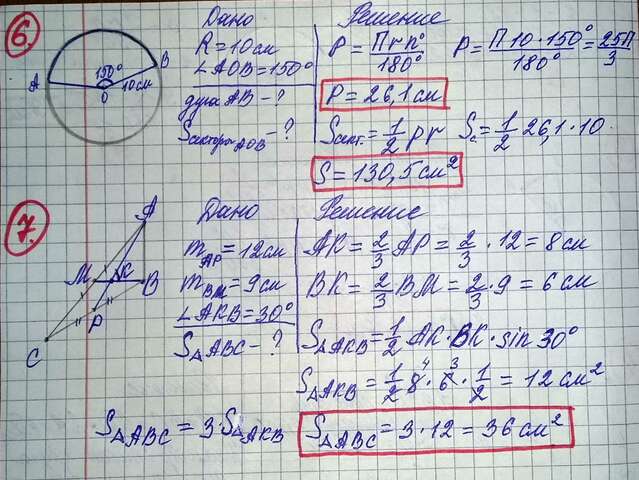 6.
Дано
R = 10 см
∠AOB = 150°
дуга AB - ?
Sсектора AOB - ?
A
B
150°
10 см
O
Решение
P = Πrn°/180° P = Π10·150°/180° = 25Π/3
P = 26,1 см
Sсект. = 1/2 pr Sс = 1/2 26,1·10.
S = 130,5 см²
7.
A
M
K
B
P
C
Дано
mAP = 12 см
mBM = 9 см
∠AKB = 30°
S△ABC - ?
Решение
AK = 2/3 AP = 2/3 · 12 = 8 см
BK = 2/3 BM = 2/3 · 9 = 6 см
S△AKB = 1/2 AK·BK·sin 30°
S△AKB = 1/2 8 4 · 6 3 · 1/2 = 12 см²
S△ABC = 3·S△AKB S△ABC = 3·12 = 36 см²